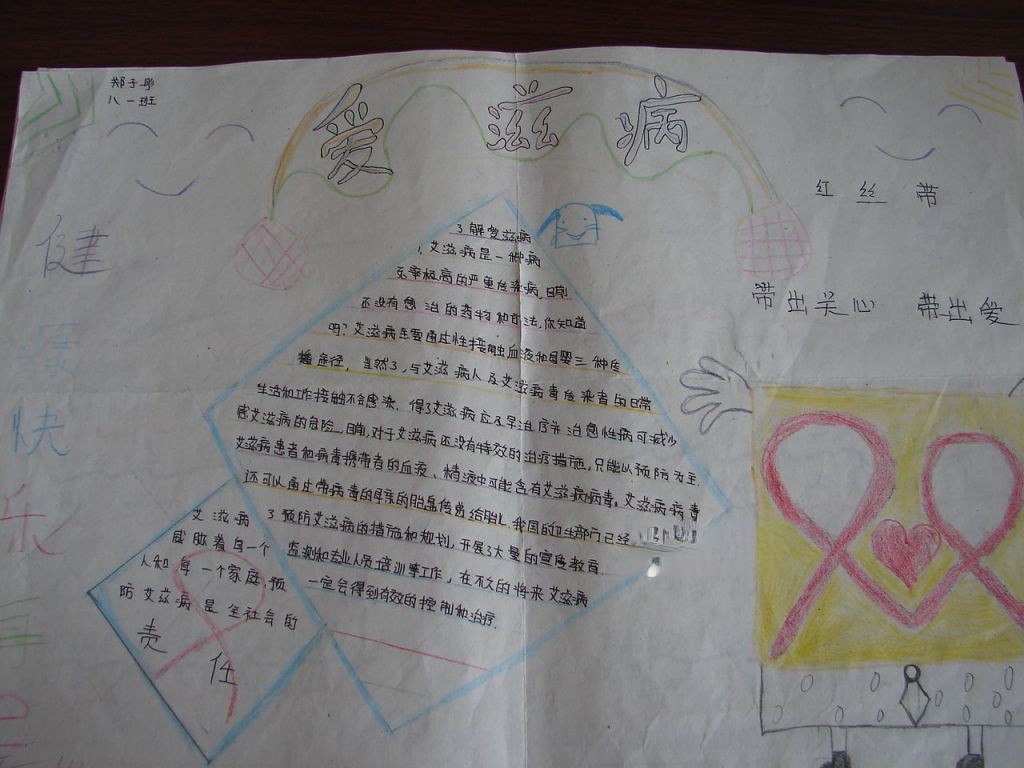 郑子彤
八一班
爱滋病
红丝带
带出关心 带出爱
健
康
快
乐
了解爱滋病
1、艾滋病是一种病
死率极高的严重传染病,目前
还没有愈治的药物和方法,你知道
吗?艾滋病主要通过性接触血液和母婴三种传
播途径,当然了,与艾滋病人及艾滋病毒传染者的日常
生活和工作接触不会感染,得了艾滋病应及早治疗并治愈性病可减少
感艾滋病的危险,目前,对于艾滋病还没有特效的治疗措施,只能以预防为主
艾滋病患者和病毒携带者的血液、精液中可能含有艾滋病病毒,艾滋病病毒
还可以通过带病毒的母亲的胎盘传染给胎儿,我国的卫生部门已经
了预防艾滋病的措施和规划,开展了大量的宣传教育
监测和专业人员培训等工作,在不久的将来艾滋病
一定会得到有效的控制和治疗.
艾滋病
威胁着每一个
人和每一个家庭,预
防艾滋病是全社会的
责任